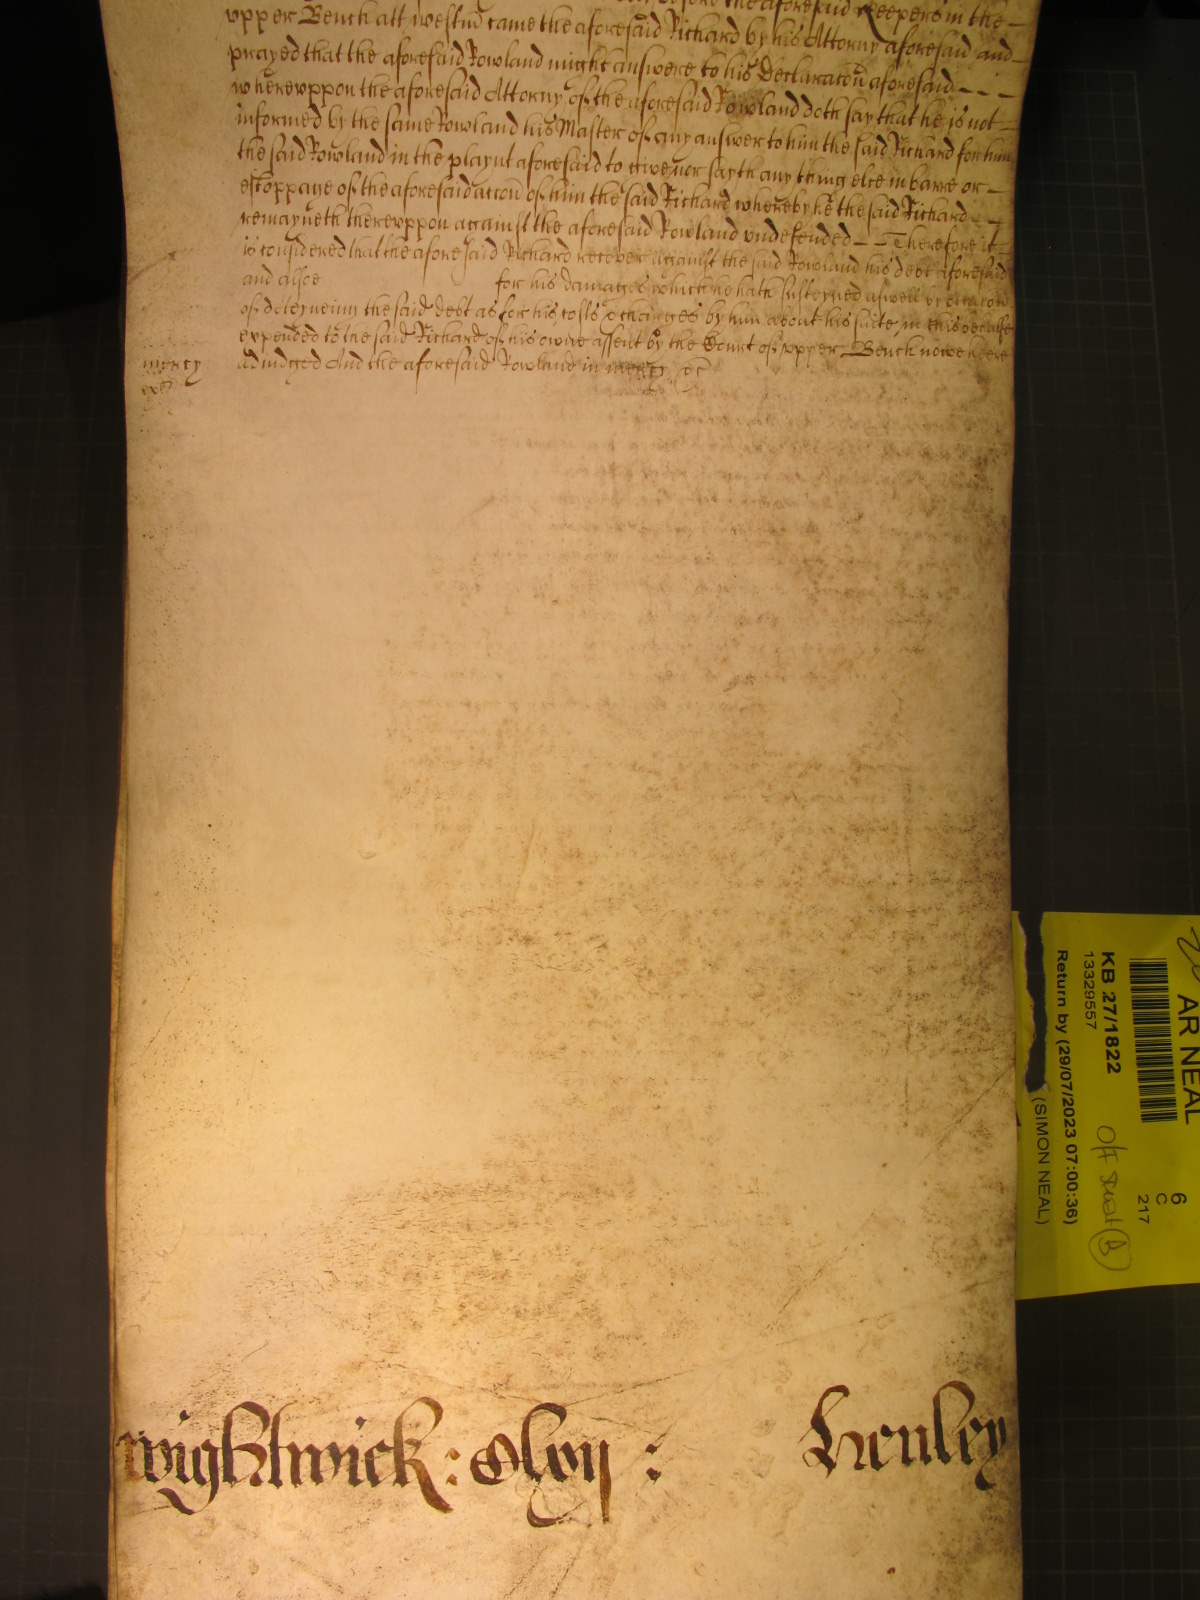 before the aforesaid Keepers in the
vpper Bench att westm̃ came the aforesaid Richard by his Attorny aforesaid and
prayed that the aforesaid Rowland might answere to his Declaracoñ aforesaid
wherevppon the aforesaid Attorny of the aforesaid Rowland doth say that he is not
informed by the same Rowland his Master of any answer to him the said Richard for him
the said Rowland in the playnt aforesaid to give nor sayth any thing else in barre or
estoppage of the aforesaid accoñ of him the said Richard whereby he the said Richard
remayneth therevppon against the aforesaid Rowland vndefended Therefore it
is considered that the aforesaid Richard recover against the said Rowland his debt aforesaid
and alsoe for his damages which he hath susteyned aswell by occacoñ
of deteyneing the said debt as for his costs & charges by him about his suite in this behalfe
expended to the said Richard of his owne assent by the Court of vpper Bench nowe heere
adiudged And the aforesaid Rowland in mercy &c
mercy
wightwick : Oley : Henley
AR NEAL
KB 27/1822
13329557
Return by (29/07/2023 07:00:36)
(SIMON NEAL)
6
C
217